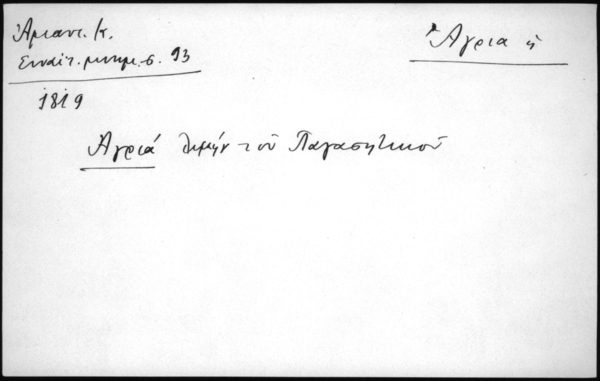 Ἀμαντ. Κ.
Συναΐτ. μνημ. σ. 93
1819
Ἄγρια ἡ
Ἀγριά λιμήν τοῦ Παγασητικοῦ